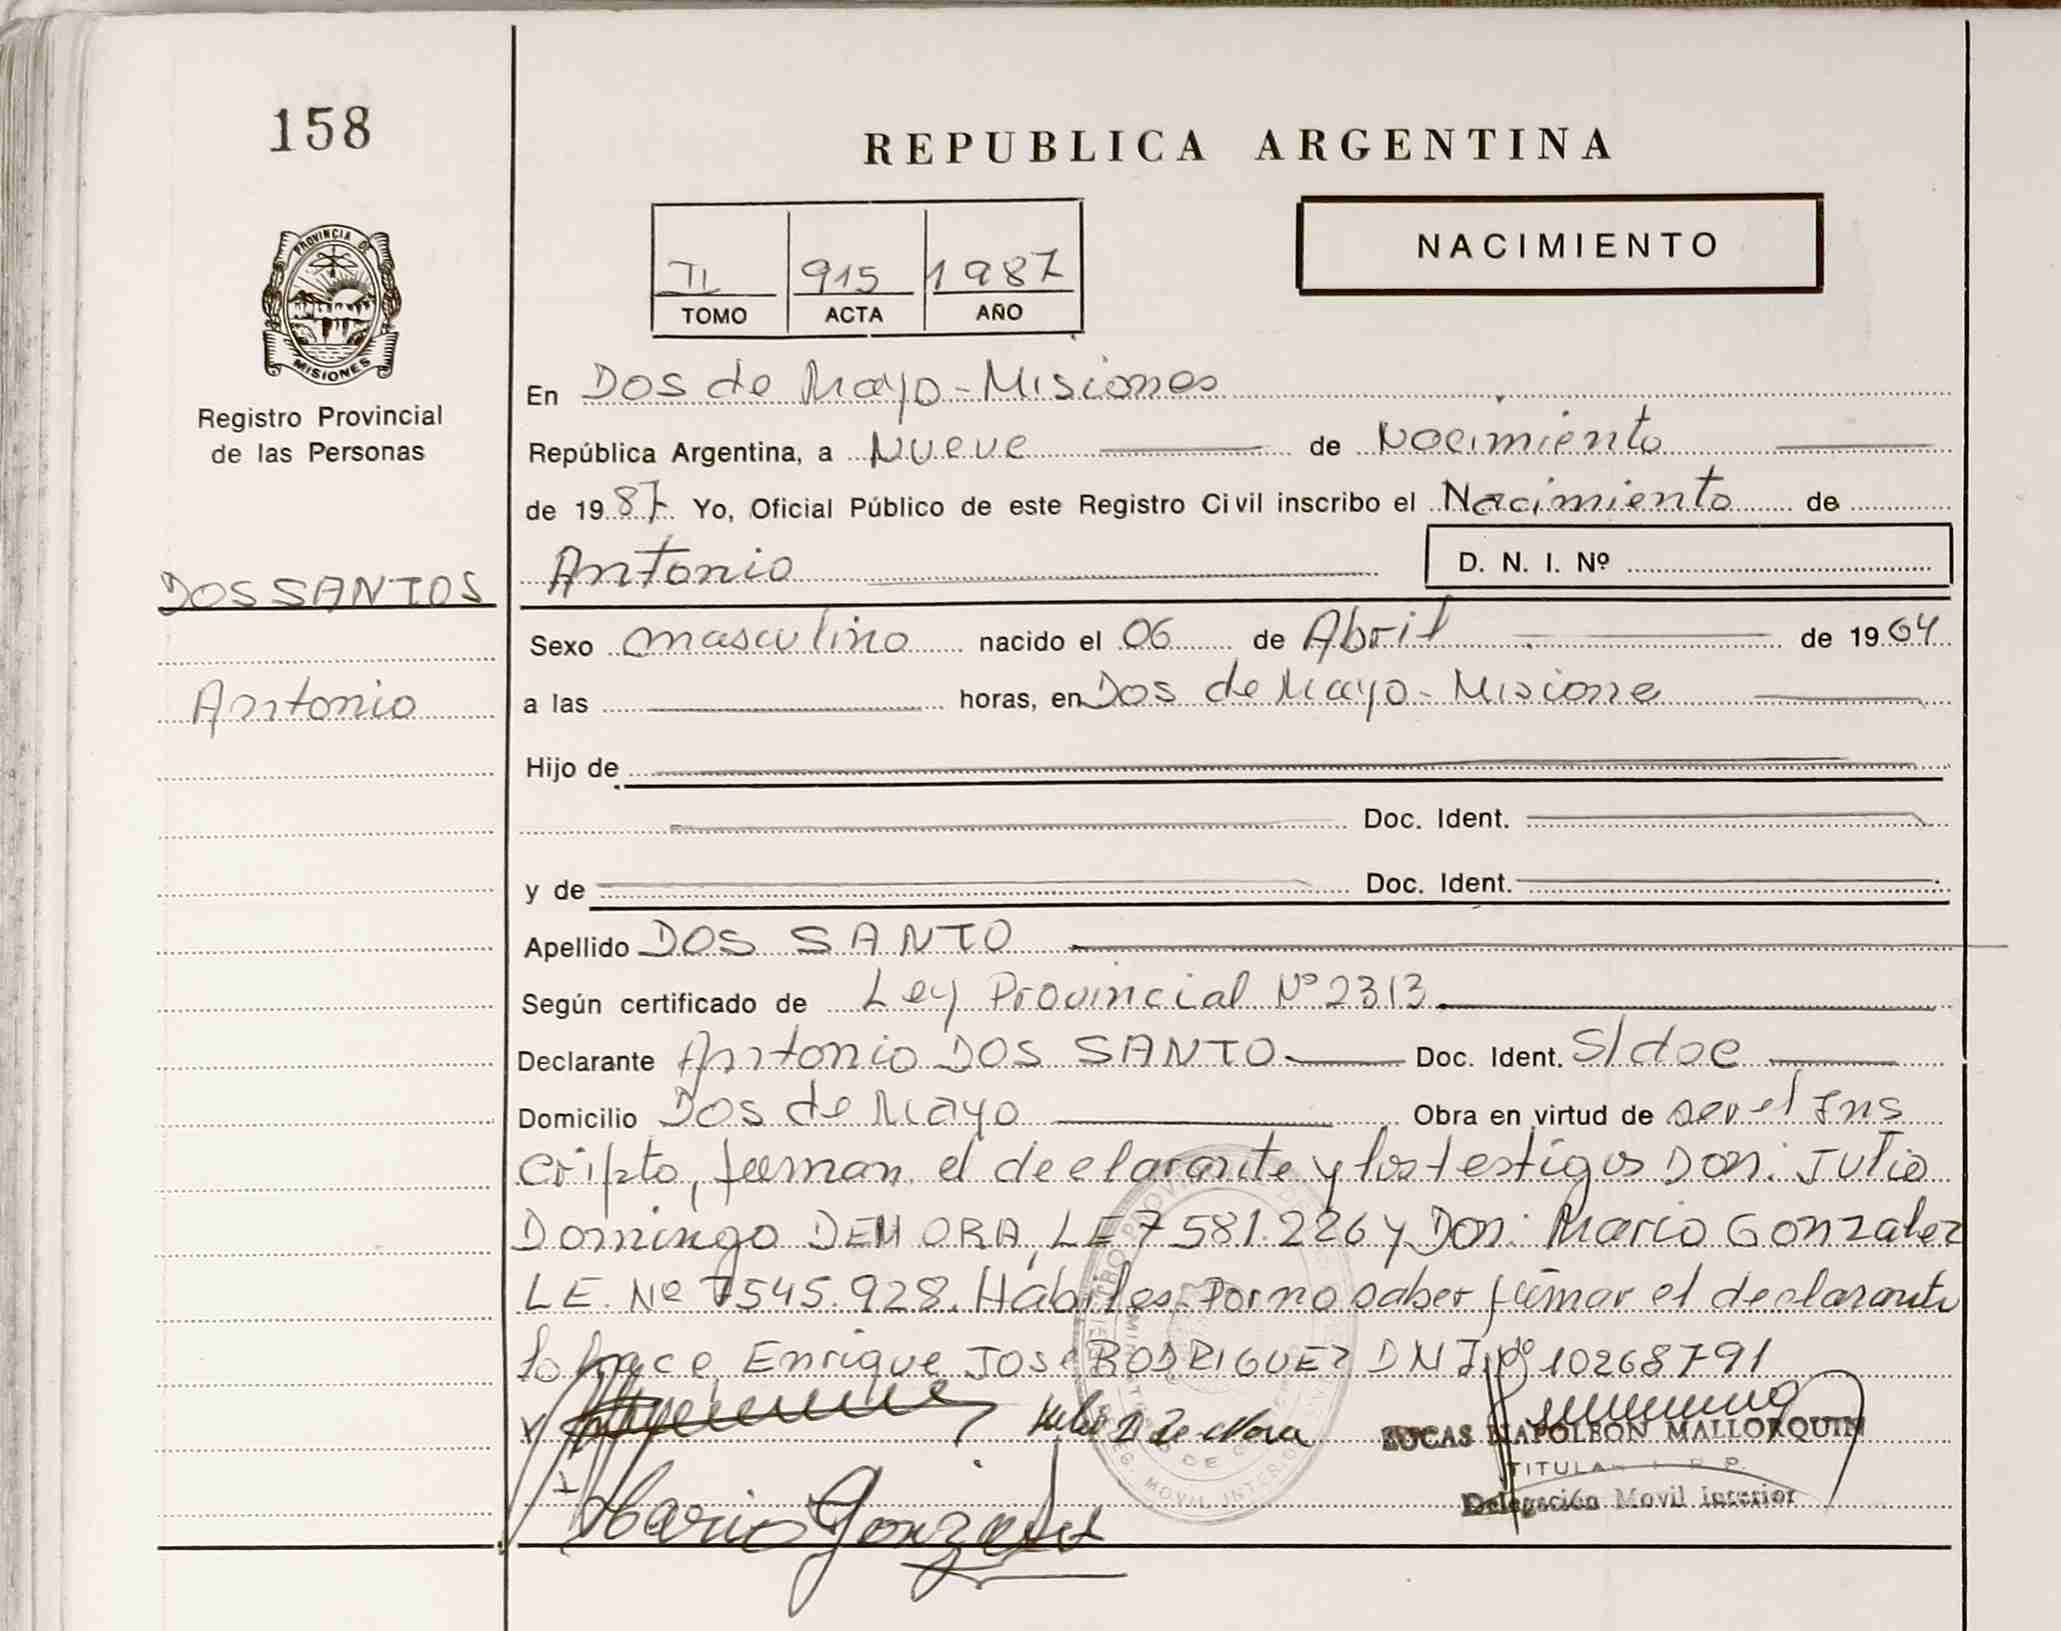 158
REPUBLICA ARGENTINA
PROVINCIA DE
MISIONES
Registro Provincial
de las Personas
II 915 1987
TOMO ACTA AÑO
NACIMIENTO
En Dos de Mayo - Misiones
República Argentina, a Nueve de Nocimiento
de 1987 Yo, Oficial Público de este Registro Civil inscribo el Nacimiento de
Antonio D. N. I. Nº
DOS SANTOS
Sexo masculino nacido el 06 de Abril de 1964
Antonio
a las horas, en Dos de Mayo - Misione
Hijo de
Doc. Ident.
y de Doc. Ident.
Apellido DOS SANTO
Según certificado de Ley Provincial Nº 2313
Declarante Antonio DOS SANTO Doc. Ident. S/doc
Domicilio Dos de Mayo Obra en virtud de ser el Ins
cripto, firman el declarante y los testigos Don: Julio
Domingo DEMORA, LE 7581.226 y Don: Mario Gonzalez
LE. Nº 7545.928. Hábiles. Por no saber firmar el declarante
lo hace Enrique José RODRIGUEZ DNI Nº 10268791
LUCAS NAPOLEON MALLORQUIN
TITULAR R. P.
Delegación Movil Interior
Mario Gonzalez